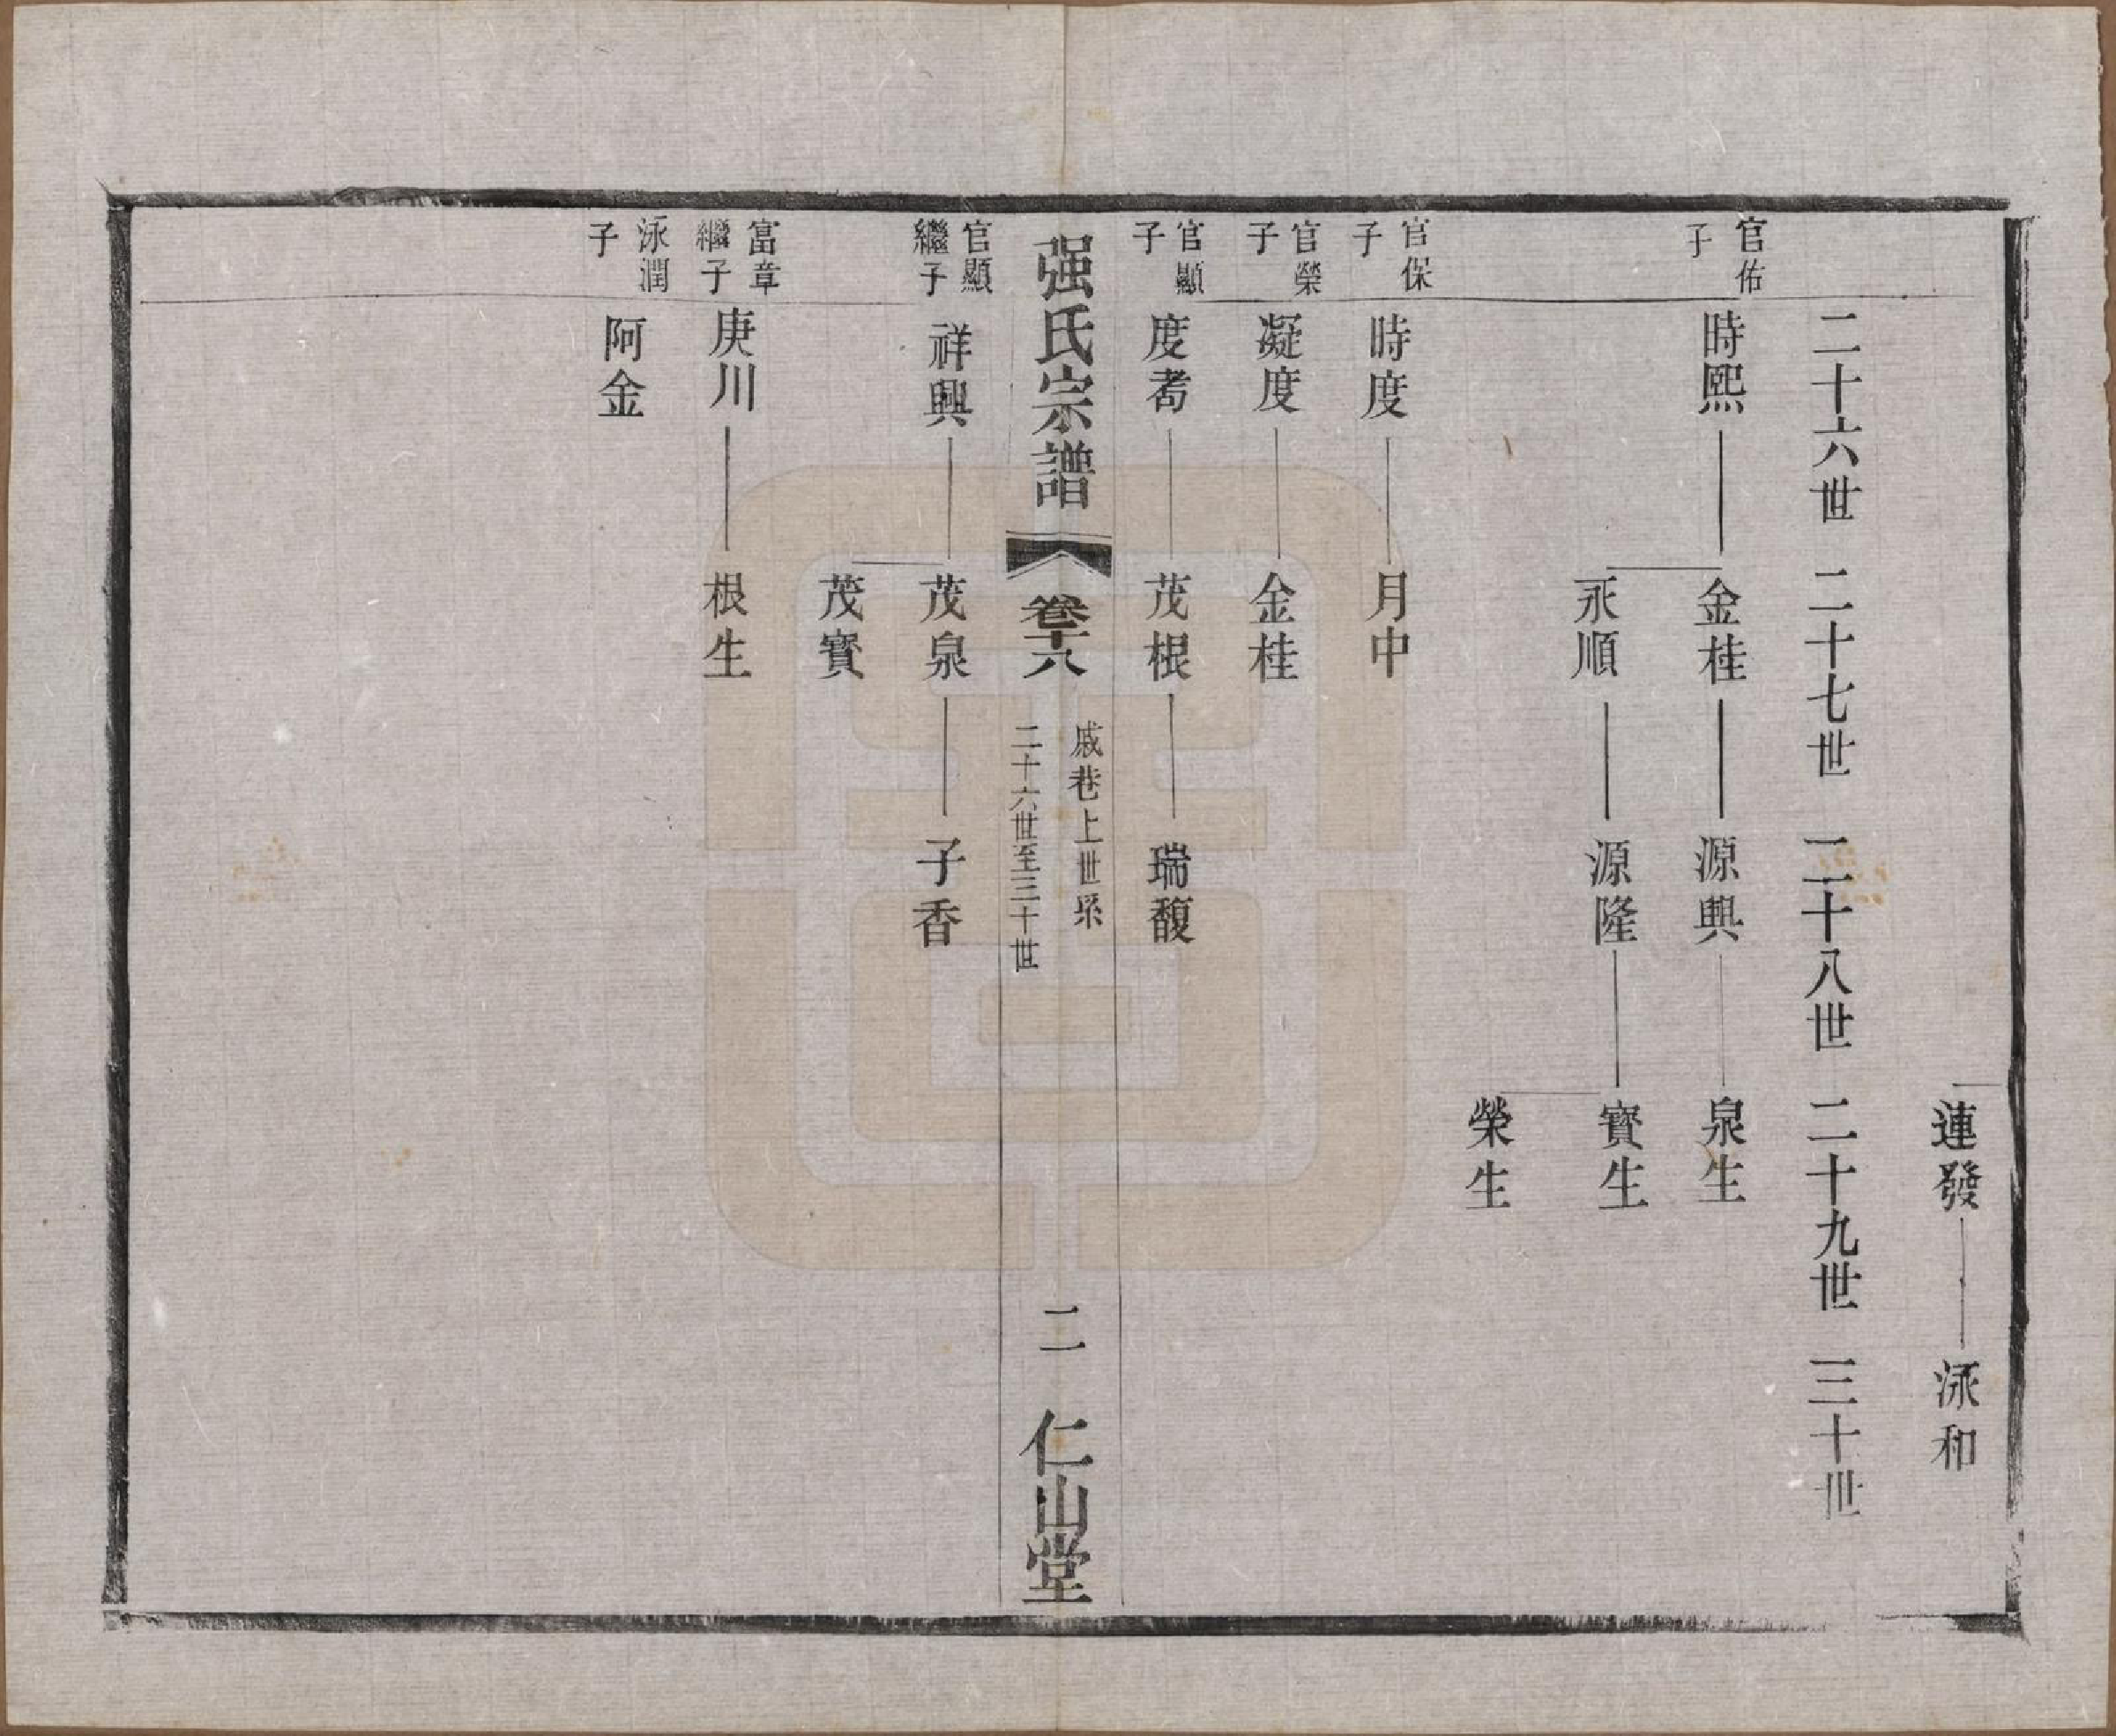 連發 泳和
二十六世 二十七世 二十八世 二十九世 三十世
官佑子 時熙 金桂 源興 泉生
永順 源隆 寳生
榮生
官保子 時度 月中
官榮子 凝度 金桂
官顯子 度耈 茂根 瑞馥
强氏宗譜 卷十八 戚巷上世系 二十六世至三十世 二 仁山堂
官顯繼子 祥興 茂泉 子香
茂寳
富章繼子 庚川 根生
泳潤子 阿金